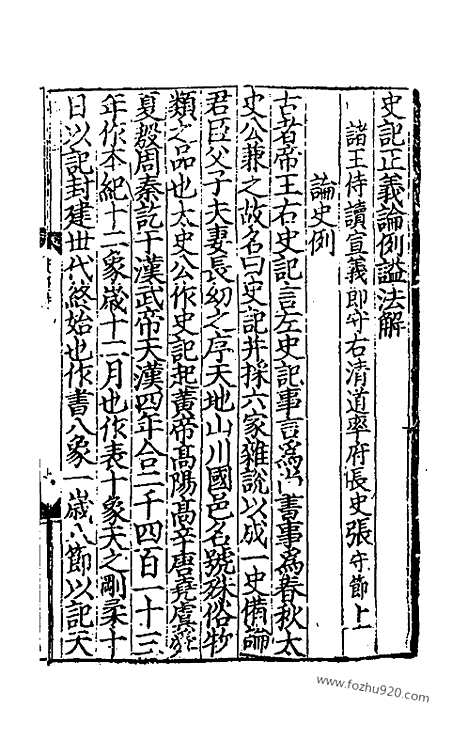 史記正義論例謚法解
諸王侍讀宣義郎守右清道率府長史張守節上
論史例
古者帝王右史記言左史記事言爲尚書事爲春秋太
史公兼之故名曰史記并採六家雜說以成一史備論
君臣父子夫妻長幼之序天地山川國邑名號殊俗物
類之品也太史公作史記起黃帝高陽高辛唐堯虞舜
夏殷周秦訖于漢武帝天漢四年合二千四百一十三
年作本紀十二象歲十二月也作表十象天之剛柔十
日以記封建世代終始也作書八象一歲八節以記天
www.fozhu920.com